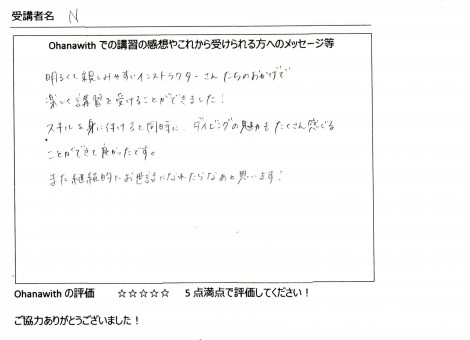 受講者名 N
Ohanawith での講習の感想やこれから受けられる方へのメッセージ等
明るくて親しみやすいインストラクターさんたちのおかげで
楽しく講習を受けることができました！
スキルを身に付けると同時に、ダイビングの魅力もたくさん感じる
ことができて良かったです。
また継続的にお世話になれたらなあと思います！
Ohanawith の評価 ☆☆☆☆☆ 5 点満点で評価してください！
ご協力ありがとうございました！